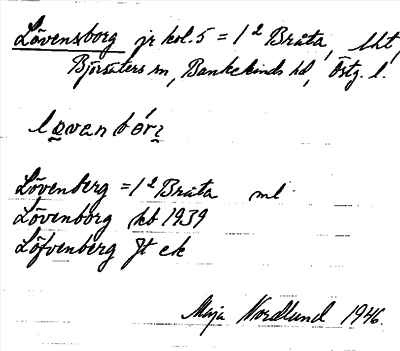 Lövensborg jr kol. 5 = 1² Bråta, lht,
Björsäters sn, Bankekinds hd, Östg. l.
Lövenberg = 1² Bråta ml
Lövenborg kb 1939
Löfvenberg Jt ek
Maja Nordlund 1946.